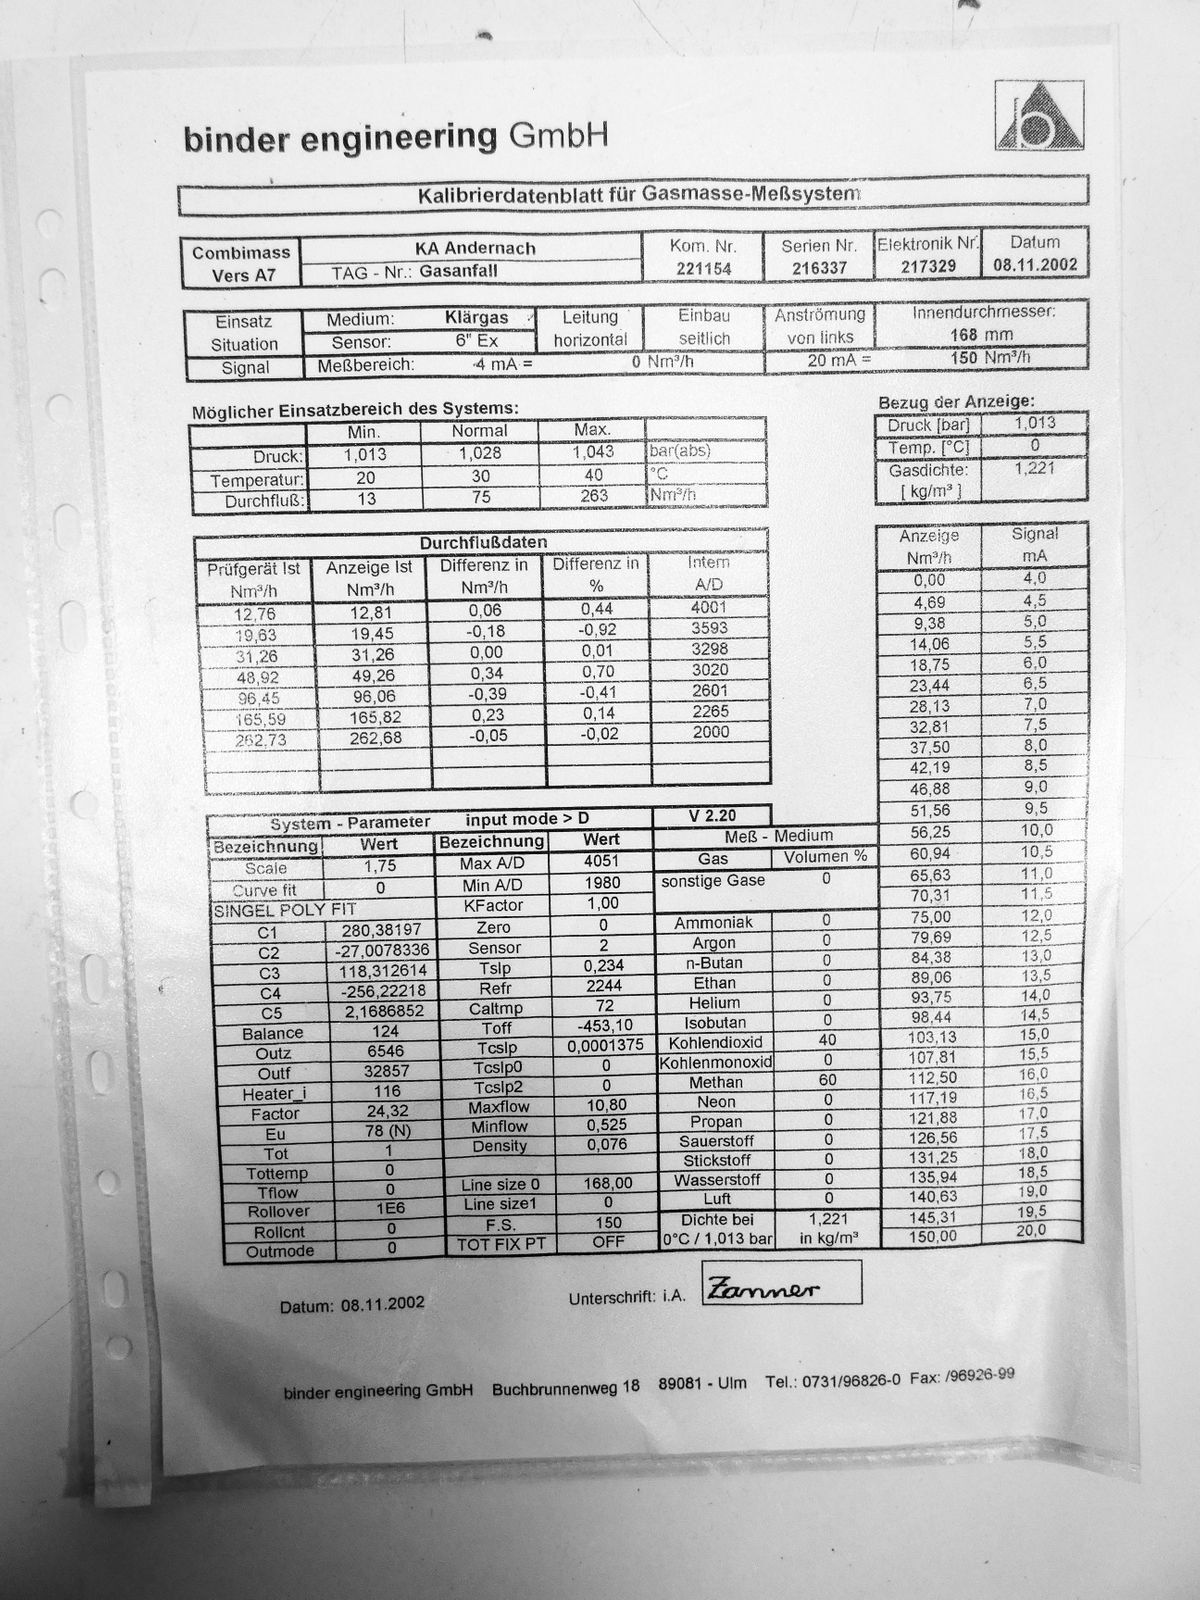 binder engineering GmbH
b
Kalibrierdatenblatt für Gasmasse-Meßsystem
Combimass Vers A7
KA Andernach
TAG - Nr.: Gasanfall
Kom. Nr. 221154
Serien Nr. 216337
Elektronik Nr. 217329
Datum 08.11.2002
Einsatz Situation
Medium: Klärgas
Sensor: 6" Ex
Leitung horizontal
Einbau seitlich
Anströmung von links
Innendurchmesser: 168 mm
Signal Meßbereich: 4 mA = 0 Nm³/h 20 mA = 150 Nm³/h
Möglicher Einsatzbereich des Systems:
Min. Normal Max.
Druck: 1,013 1,028 1,043 bar(abs)
Temperatur: 20 30 40 °C
Durchfluß: 13 75 263 Nm³/h
Bezug der Anzeige:
Druck [bar] 1,013
Temp. [°C] 0
Gasdichte: 1,221
[ kg/m³ ]
Durchflußdaten
Prüfgerät Ist Anzeige Ist Differenz in Differenz in Intern
Nm³/h Nm³/h Nm³/h % A/D
12,76 12,81 0,06 0,44 4001
19,63 19,45 -0,18 -0,92 3593
31,26 31,26 0,00 0,01 3298
48,92 49,26 0,34 0,70 3020
96,45 96,06 -0,39 -0,41 2601
165,59 165,82 0,23 0,14 2265
262,73 262,68 -0,05 -0,02 2000
Anzeige Signal
Nm³/h mA
0,00 4,0
4,69 4,5
9,38 5,0
14,06 5,5
18,75 6,0
23,44 6,5
28,13 7,0
32,81 7,5
37,50 8,0
42,19 8,5
46,88 9,0
51,56 9,5
56,25 10,0
60,94 10,5
65,63 11,0
70,31 11,5
75,00 12,0
79,69 12,5
84,38 13,0
89,06 13,5
93,75 14,0
98,44 14,5
103,13 15,0
107,81 15,5
112,50 16,0
117,19 16,5
121,88 17,0
126,56 17,5
131,25 18,0
135,94 18,5
140,63 19,0
145,31 19,5
150,00 20,0
System - Parameter input mode > D V 2.20
Bezeichnung Wert Bezeichnung Wert
Scale 1,75 Max A/D 4051
Curve fit 0 Min A/D 1980
SINGEL POLY FIT KFactor 1,00
C1 280,38197 Zero 0
C2 -27,0078336 Sensor 2
C3 118,312614 Tslp 0,234
C4 -256,22218 Refr 2244
C5 2,1686852 Caltmp 72
Balance 124 Toff -453,10
Outz 6546 Tcslp 0,0001375
Outf 32857 Tcslp0 0
Heater_i 116 Tcslp2 0
Factor 24,32 Maxflow 10,80
Eu 78 (N) Minflow 0,525
Tot 1 Density 0,076
Tottemp 0
Tflow 0 Line size 0 168,00
Rollover 1E6 Line size1 0
Rollcnt 0 F.S. 150
Outmode 0 TOT FIX PT OFF
Meß - Medium
Gas Volumen %
sonstige Gase 0
Ammoniak 0
Argon 0
n-Butan 0
Ethan 0
Helium 0
Isobutan 0
Kohlendioxid 40
Kohlenmonoxid 0
Methan 60
Neon 0
Propan 0
Sauerstoff 0
Stickstoff 0
Wasserstoff 0
Luft 0
Dichte bei 1,221
0°C / 1,013 bar in kg/m³
Datum: 08.11.2002 Unterschrift: i.A. Zanner
binder engineering GmbH Buchbrunnenweg 18 89081 - Ulm Tel.: 0731/96826-0 Fax: /96926-99